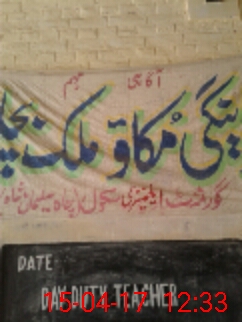 آگاہی مہم
ڈینگی مکاؤ ملک بچاؤ
گورنمنٹ ایلیمنٹری سکول چاہ سلیمان شاہ
DATE
DAY DUTY TEACHER
15-04-17 12:33